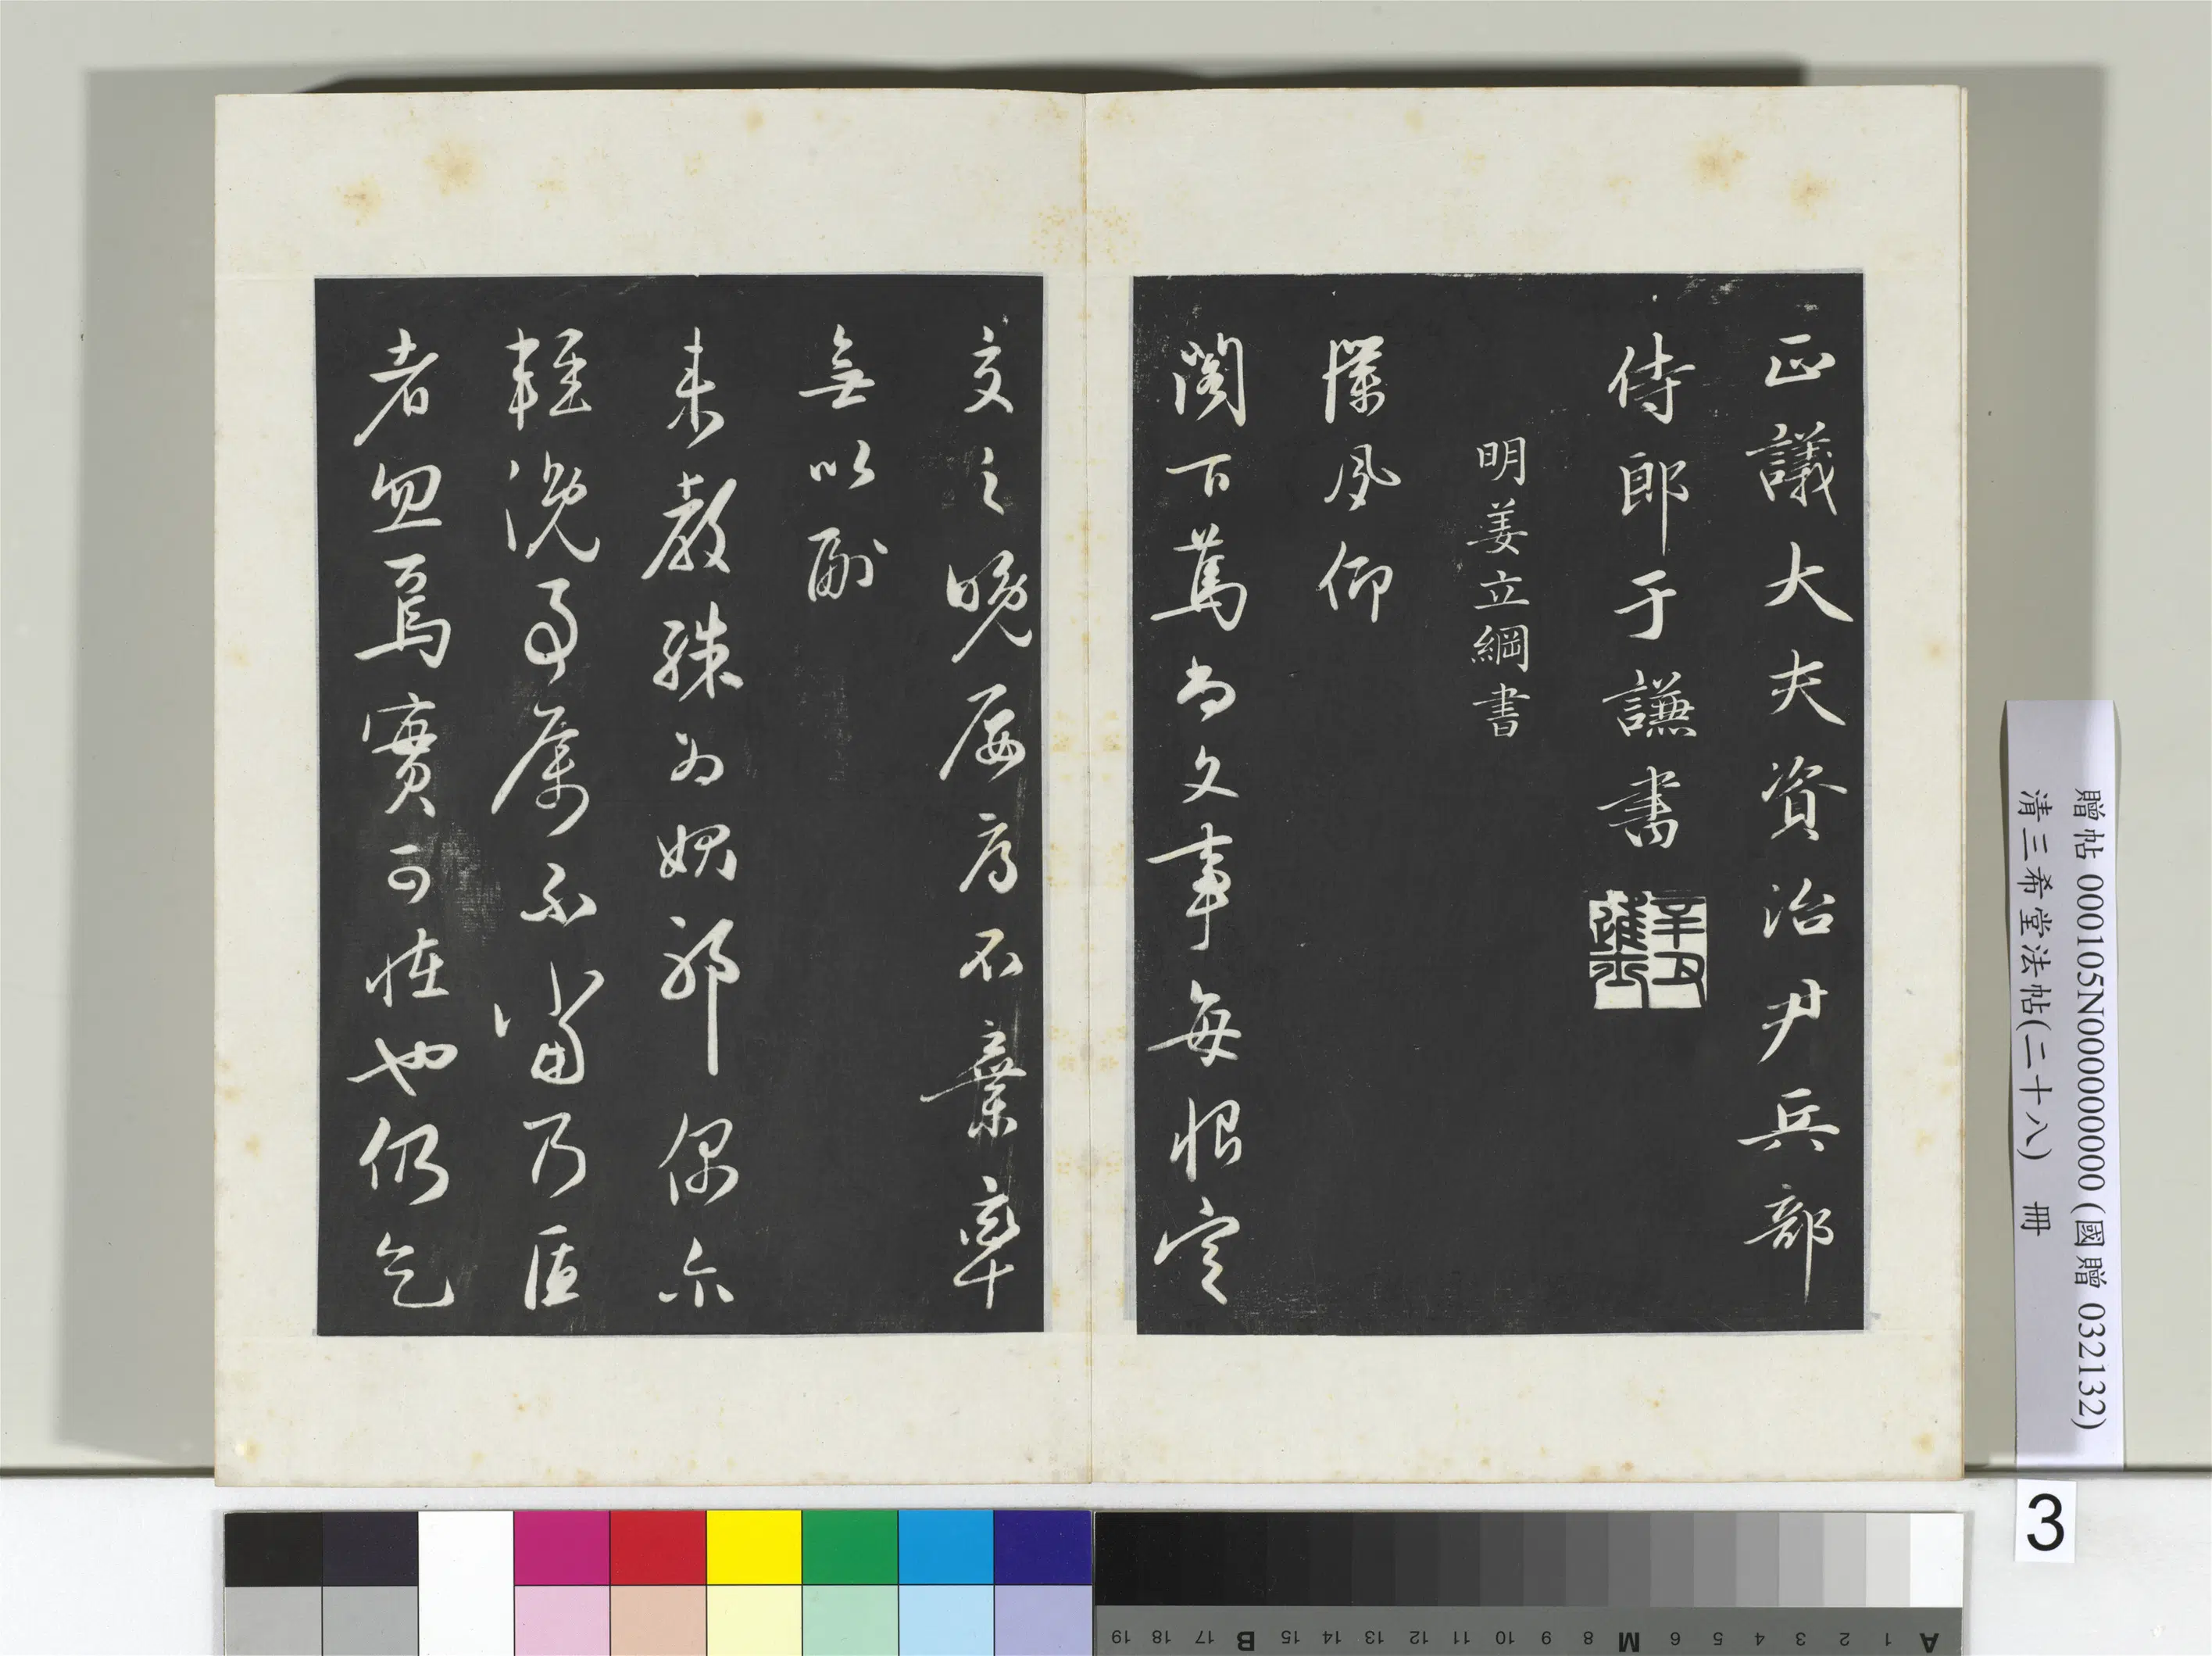 正議大夫資治尹兵部
侍郎于謙書
辛丑進士
明姜立綱書
僕夙仰
閣下篤尚文事每恨定
交之晚屢辱不棄率
無以酬
来教殊為媿耶偶尒
輕浼事屬不當乃匠
者忽焉實可怪也仍乞
贈帖 000105N000000000 (國贈 032132)
清三希堂法帖(二十八) 冊
3
A 1 2 3 4 5 6 M 8 9 10 11 12 13 14 15 B 17 18 19